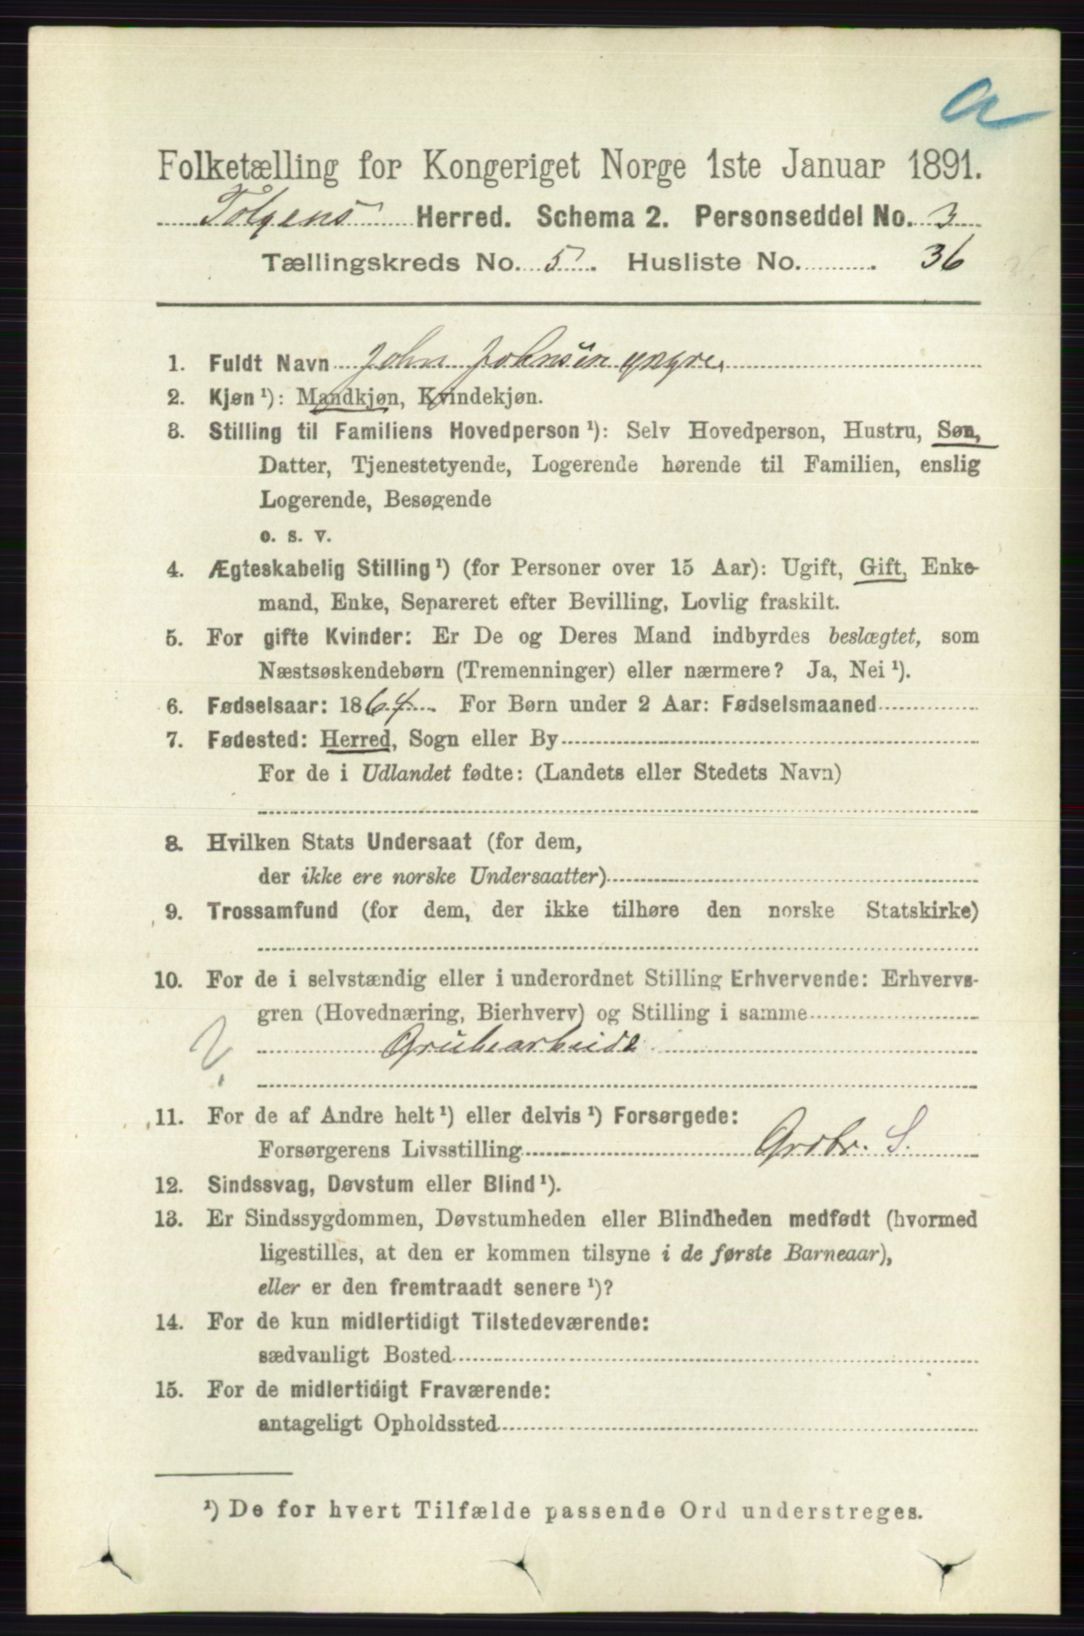 a
Folketælling for Kongeriget Norge 1ste Januar 1891.
Tolgens Herred. Schema 2. Personseddel No. 3
Tællingskreds No. 5. Husliste No. 36
1. Fuldt Navn John Johnsen yngre,
2. Kjøn ¹): Mandkjøn, Kvindekjøn.
3. Stilling til Familiens Hovedperson ¹): Selv Hovedperson, Hustru, Søn,
Datter, Tjenestetyende, Logerende hørende til Familien, enslig
Logerende, Besøgende
o. s. v.
4. Ægteskabelig Stilling ¹) (for Personer over 15 Aar): Ugift, Gift, Enke-
mand, Enke, Separeret efter Bevilling, Lovlig fraskilt.
5. For gifte Kvinder: Er De og Deres Mand indbyrdes beslægtet, som
Næstsøskendebørn (Tremenninger) eller nærmere? Ja, Nei ¹).
6. Fødselsaar: 1864. For Børn under 2 Aar: Fødselsmaaned
7. Fødested: Herred, Sogn eller By
For de i Udlandet fødte: (Landets eller Stedets Navn)
8. Hvilken Stats Undersaat (for dem,
der ikke ere norske Undersaatter)
9. Trossamfund (for dem, der ikke tilhøre den norske Statskirke)
10. For de i selvstændig eller i underordnet Stilling Erhvervende: Erhvervs-
gren (Hovednæring, Bierhverv) og Stilling i samme
Grubearbeide
11. For de af Andre helt ¹) eller delvis ¹) Forsørgede:
Forsørgerens Livsstilling Grdbr. S.
12. Sindssvag, Døvstum eller Blind ¹).
13. Er Sindssygdommen, Døvstumheden eller Blindheden medfødt (hvormed
ligestilles, at den er kommen tilsyne i de første Barneaar),
eller er den fremtraadt senere ¹)?
14. For de kun midlertidigt Tilstedeværende:
sædvanligt Bosted
15. For de midlertidigt Fraværende:
antageligt Opholdssted
¹) De for hvert Tilfælde passende Ord understreges.